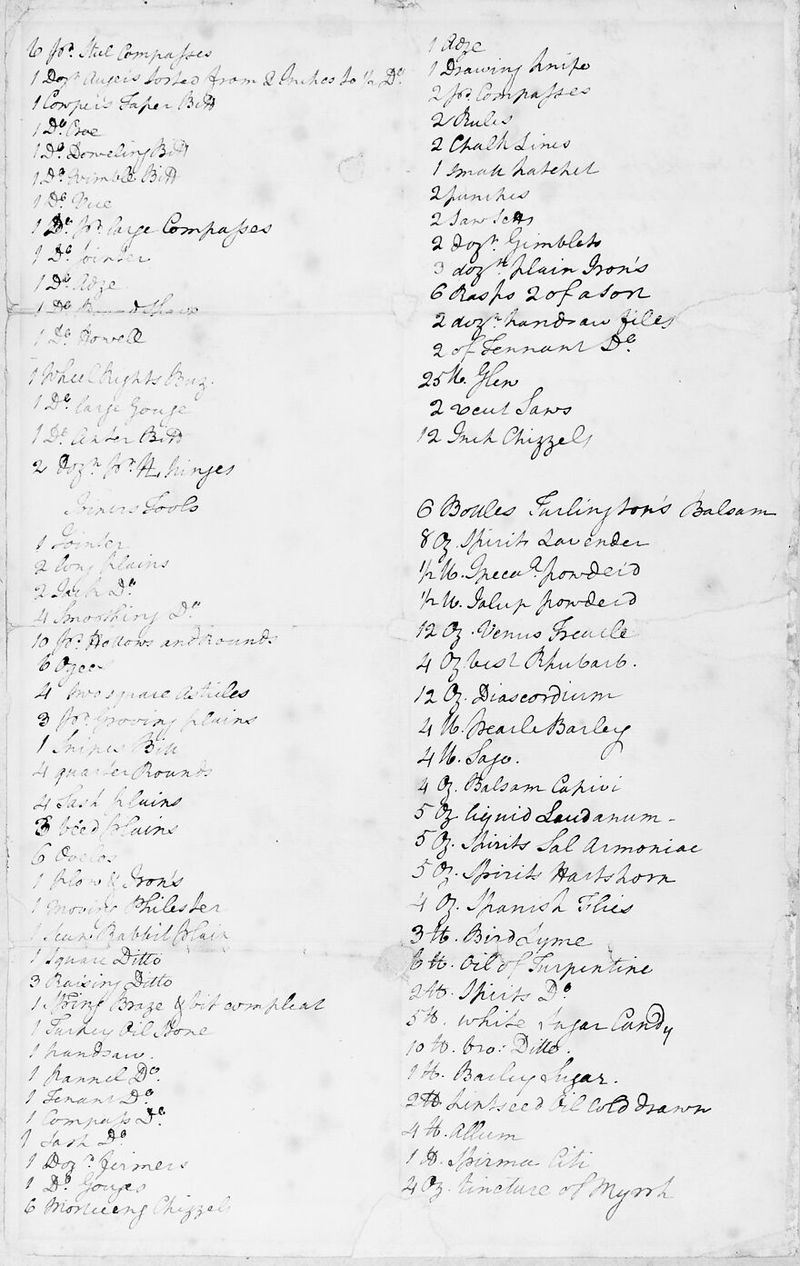 6 pr. Steel Compasses
1 Dozn. Augers Sorted from 2 Inches to ½ Do.
1 Cooper's Taper Bitt
1 Do. Croe
1 Do. Doweling Bitt
1 Do. Wimble Bitt
1 Do. Vice
1 Do. pr. large Compasses
1 Do. Jointer
1 Do. Adze
1 Do. Shave
1 Do. Howell
1 Wheel Rights Buz.
1 Do. large Gouge
1 Do. Center Bitt
2 Dozn. pr. HL hinges
Joiners Tools
1 Jointer
2 long plains
2 Jack Do.
4 Smoothing Do.
10 pr. Hollows and Rounds
6 Ogees
4 two square Astiles
3 pr. Groving plains
1 Snipes Bill
4 quarter Rounds
4 Sash plains
3 bèed plains
6 Ovelos
1 plow & Iron's
1 moving Philester
1 Rabbit plain
1 Square Ditto
3 Raising Ditto
1 Spring Braze & bit compleat
1 Turkey Oil Stone
1 handsaw.
1 Pannel Do.
1 Tenant Do.
1 Compass Do.
1 Sash Do.
1 Dozn. firmers
1 Do. Gouges
6 Morticeing Chizzels
1 Adze
1 Drawing Knife
2 pr. Compasses
2 Rules
2 Chalk Lines
1 small hatchet
2 punches
2 Saw Setts
2 dozn. Gimblets
3 dozn. plain Iron's
6 Rasps 2 of a sort
2 dozn. handsaw files
2 of Tennant Do.
25 lb. Glew
2 xcut Saws
12 Inch Chizzels
6 Bottles Turlington's Balsam
8 Oz Spirits Lavender
½ lb. Ipecaa. powderd
½ lb. Jalup powderd
12 Oz. Venus Treacle
4 Oz best Rhubarb.
12 Oz. Diascordium
4 lb. Pearle Barley
4 lb. Sago.
4 Oz. Balsam Capivi
5 Oz liquid Laudanum -
5 Oz. Spirits Sal Armoniac
5 Oz. Spirits Hartshorn
4 Oz. Spanish Flies
3 lb. Bird Lyme
6 lb. Oil of Turpentine
2 lb. Spirits Do.
5 lb. white Sugar Candy
10 lb. bro: Ditto.
1 lb. Barley Sugar.
2 lb Lintseed Oil Cold drawn
4 lb. Allum
1 lb. Spirma Citi
4 Oz. tincture of Myrrh